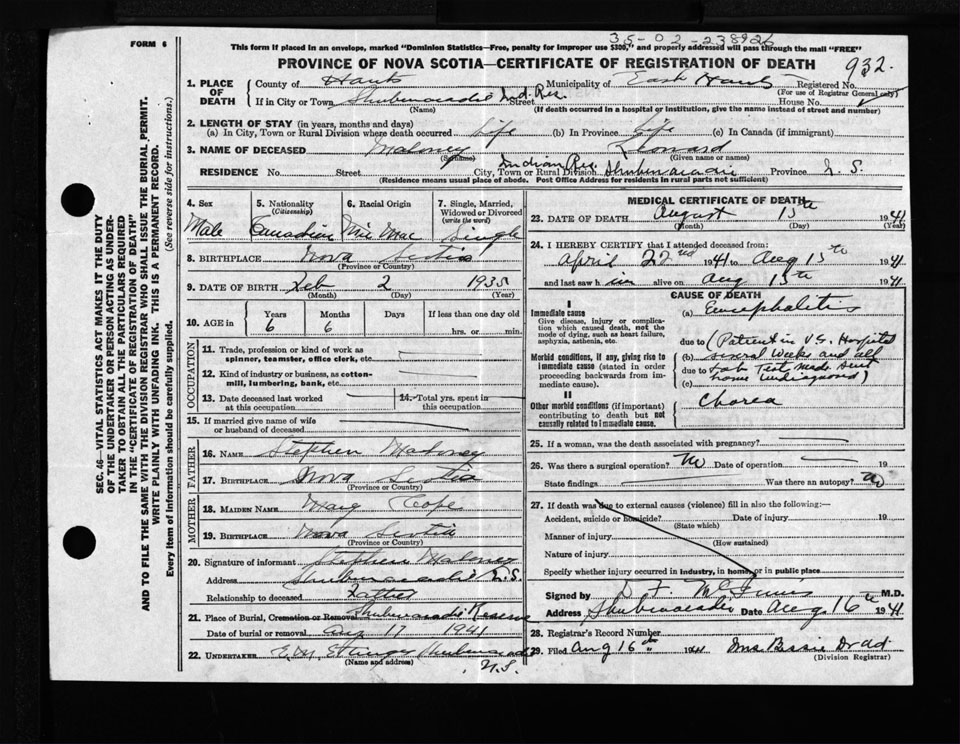 35-02-238926
FORM 6
This form if placed in an envelope, marked "Dominion Statistics—Free, penalty for improper use $300," and properly addressed will pass through the mail "FREE"
PROVINCE OF NOVA SCOTIA—CERTIFICATE OF REGISTRATION OF DEATH
932.
1. PLACE OF DEATH
County of Hants Municipality of East Hants Registered No.
(For use of Registrar General only)
If in City or Town Shubenacadie Ind. Res. Street House No.
(Name) (If death occurred in a hospital or institution, give the name instead of street and number)
2. LENGTH OF STAY (in years, months and days)
(a) In City, Town or Rural Division where death occurred Life (b) In Province Life (c) In Canada (if immigrant)
3. NAME OF DECEASED Maloney Leonard
(Surname) (Given name or names)
RESIDENCE No. Street City, Town or Rural Division Indian Res. Shubenacadie Province N. S.
(Residence means usual place of abode. Post Office Address for residents in rural parts not sufficient)
4. Sex Male
5. Nationality (Citizenship) Canadian
6. Racial Origin Mic Mac
7. Single, Married, Widowed or Divorced (write the word) Single
8. BIRTHPLACE Nova Scotia
(Province or Country)
9. DATE OF BIRTH Feb 2 1935
(Month) (Day) (Year)
10. AGE in Years Months Days If less than one day old
6 6 hrs. or min.
OCCUPATION
11. Trade, profession or kind of work as spinner, teamster, office clerk, etc.
12. Kind of industry or business, as cotton-mill, lumbering, bank, etc.
13. Date deceased last worked at this occupation
14. Total yrs. spent in this occupation
15. If married give name of wife or husband of deceased
FATHER
16. NAME Stephen Maloney
17. BIRTHPLACE Nova Scotia
(Province or Country)
MOTHER
18. MAIDEN NAME Mary Cope
19. BIRTHPLACE Nova Scotia
(Province or Country)
20. Signature of informant Stephen Maloney
Address Shubenacadie N.S.
Relationship to deceased Father
21. Place of Burial, Cremation or Removal Shubenacadie Reserve
Date of burial or removal Aug 17 1941
22. UNDERTAKER E.M. Ettinger Shubenacadie
(Name and address) N.S.
MEDICAL CERTIFICATE OF DEATH
23. DATE OF DEATH August 15th 1941
(Month) (Day)
24. I HEREBY CERTIFY that I attended deceased from:
April 22nd 1941 to Aug 15th 1941
and last saw him alive on Aug 15th 1941
CAUSE OF DEATH
I
Immediate cause
Give disease, injury or complication which caused death, not the mode of dying, such as heart failure, asphyxia, asthenia, etc.
(a) Encephalitis
Morbid conditions, if any, giving rise to immediate cause (stated in order proceeding backwards from immediate cause).
due to (Patient in V.G. Hospital
(b) several weeks and all
due to Lab Test made sent
(c) home undiagnosed)
II
Other morbid conditions (if important) contributing to death but not causally related to immediate cause.
Chorea
25. If a woman, was the death associated with pregnancy?
26. Was there a surgical operation? No Date of operation 19
State findings Was there an autopsy? No
27. If death was due to external causes (violence) fill in also the following:—
Accident, suicide or homicide? Date of injury 19
(State which)
Manner of injury
(How sustained)
Nature of injury
Specify whether injury occurred in industry, in home, or in public place
Signed by D. F. McInnis M.D.
Address Shubenacadie Date Aug 16th 1941
28. Registrar's Record Number
29. Filed Aug 16th 1941 Mrs Bessie
(Division Registrar)
SEC. 46—VITAL STATISTICS ACT MAKES IT THE DUTY
OF THE UNDERTAKER OR PERSON ACTING AS UNDER-
TAKER TO OBTAIN ALL THE PARTICULARS REQUIRED
IN THE "CERTIFICATE OF REGISTRATION OF DEATH"
AND TO FILE THE SAME WITH THE DIVISION REGISTRAR WHO SHALL ISSUE THE BURIAL PERMIT.
WRITE PLAINLY WITH UNFADING INK. THIS IS A PERMANENT RECORD.
Every item of Information should be carefully supplied. (See reverse side for instructions.)